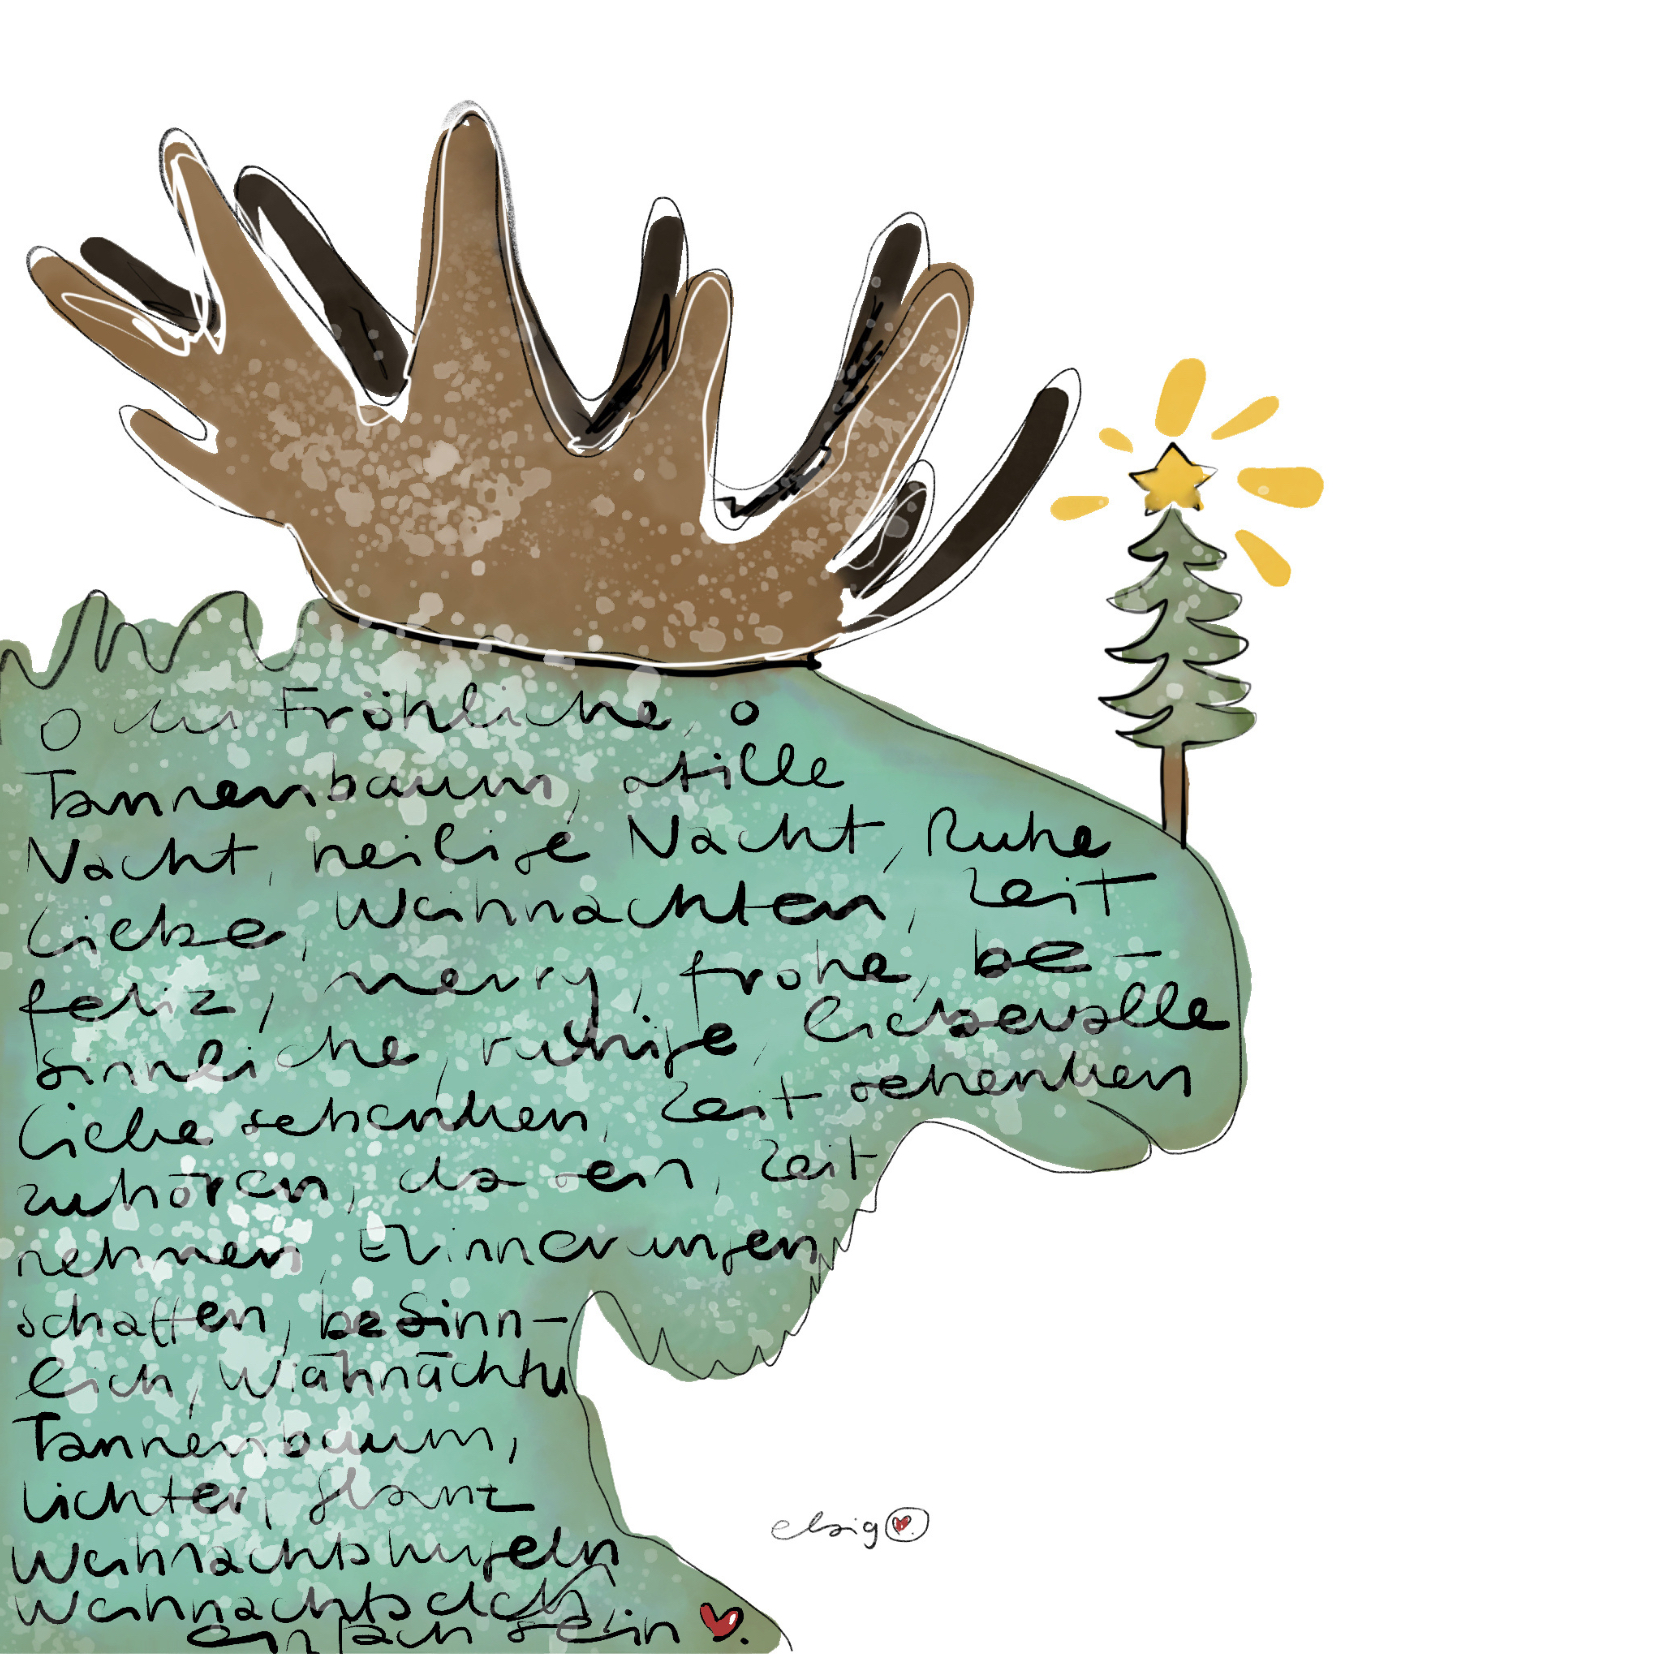 O du Fröhliche, o
Tannenbaum, stille
Nacht, heilige Nacht, Ruhe
Liebe, Weihnachten, Zeit
feliz, merry, frohe, be-
sinnliche, ruhige, liebevolle
Liebe schenken, Zeit schenken
zuhören, da sein, Zeit
nehmen, Erinnerungen
schaffen, besinn-
lich,
Tannenbaum,
Lichter, Glanz
Weihnachtskugeln
einfach sein
elsig